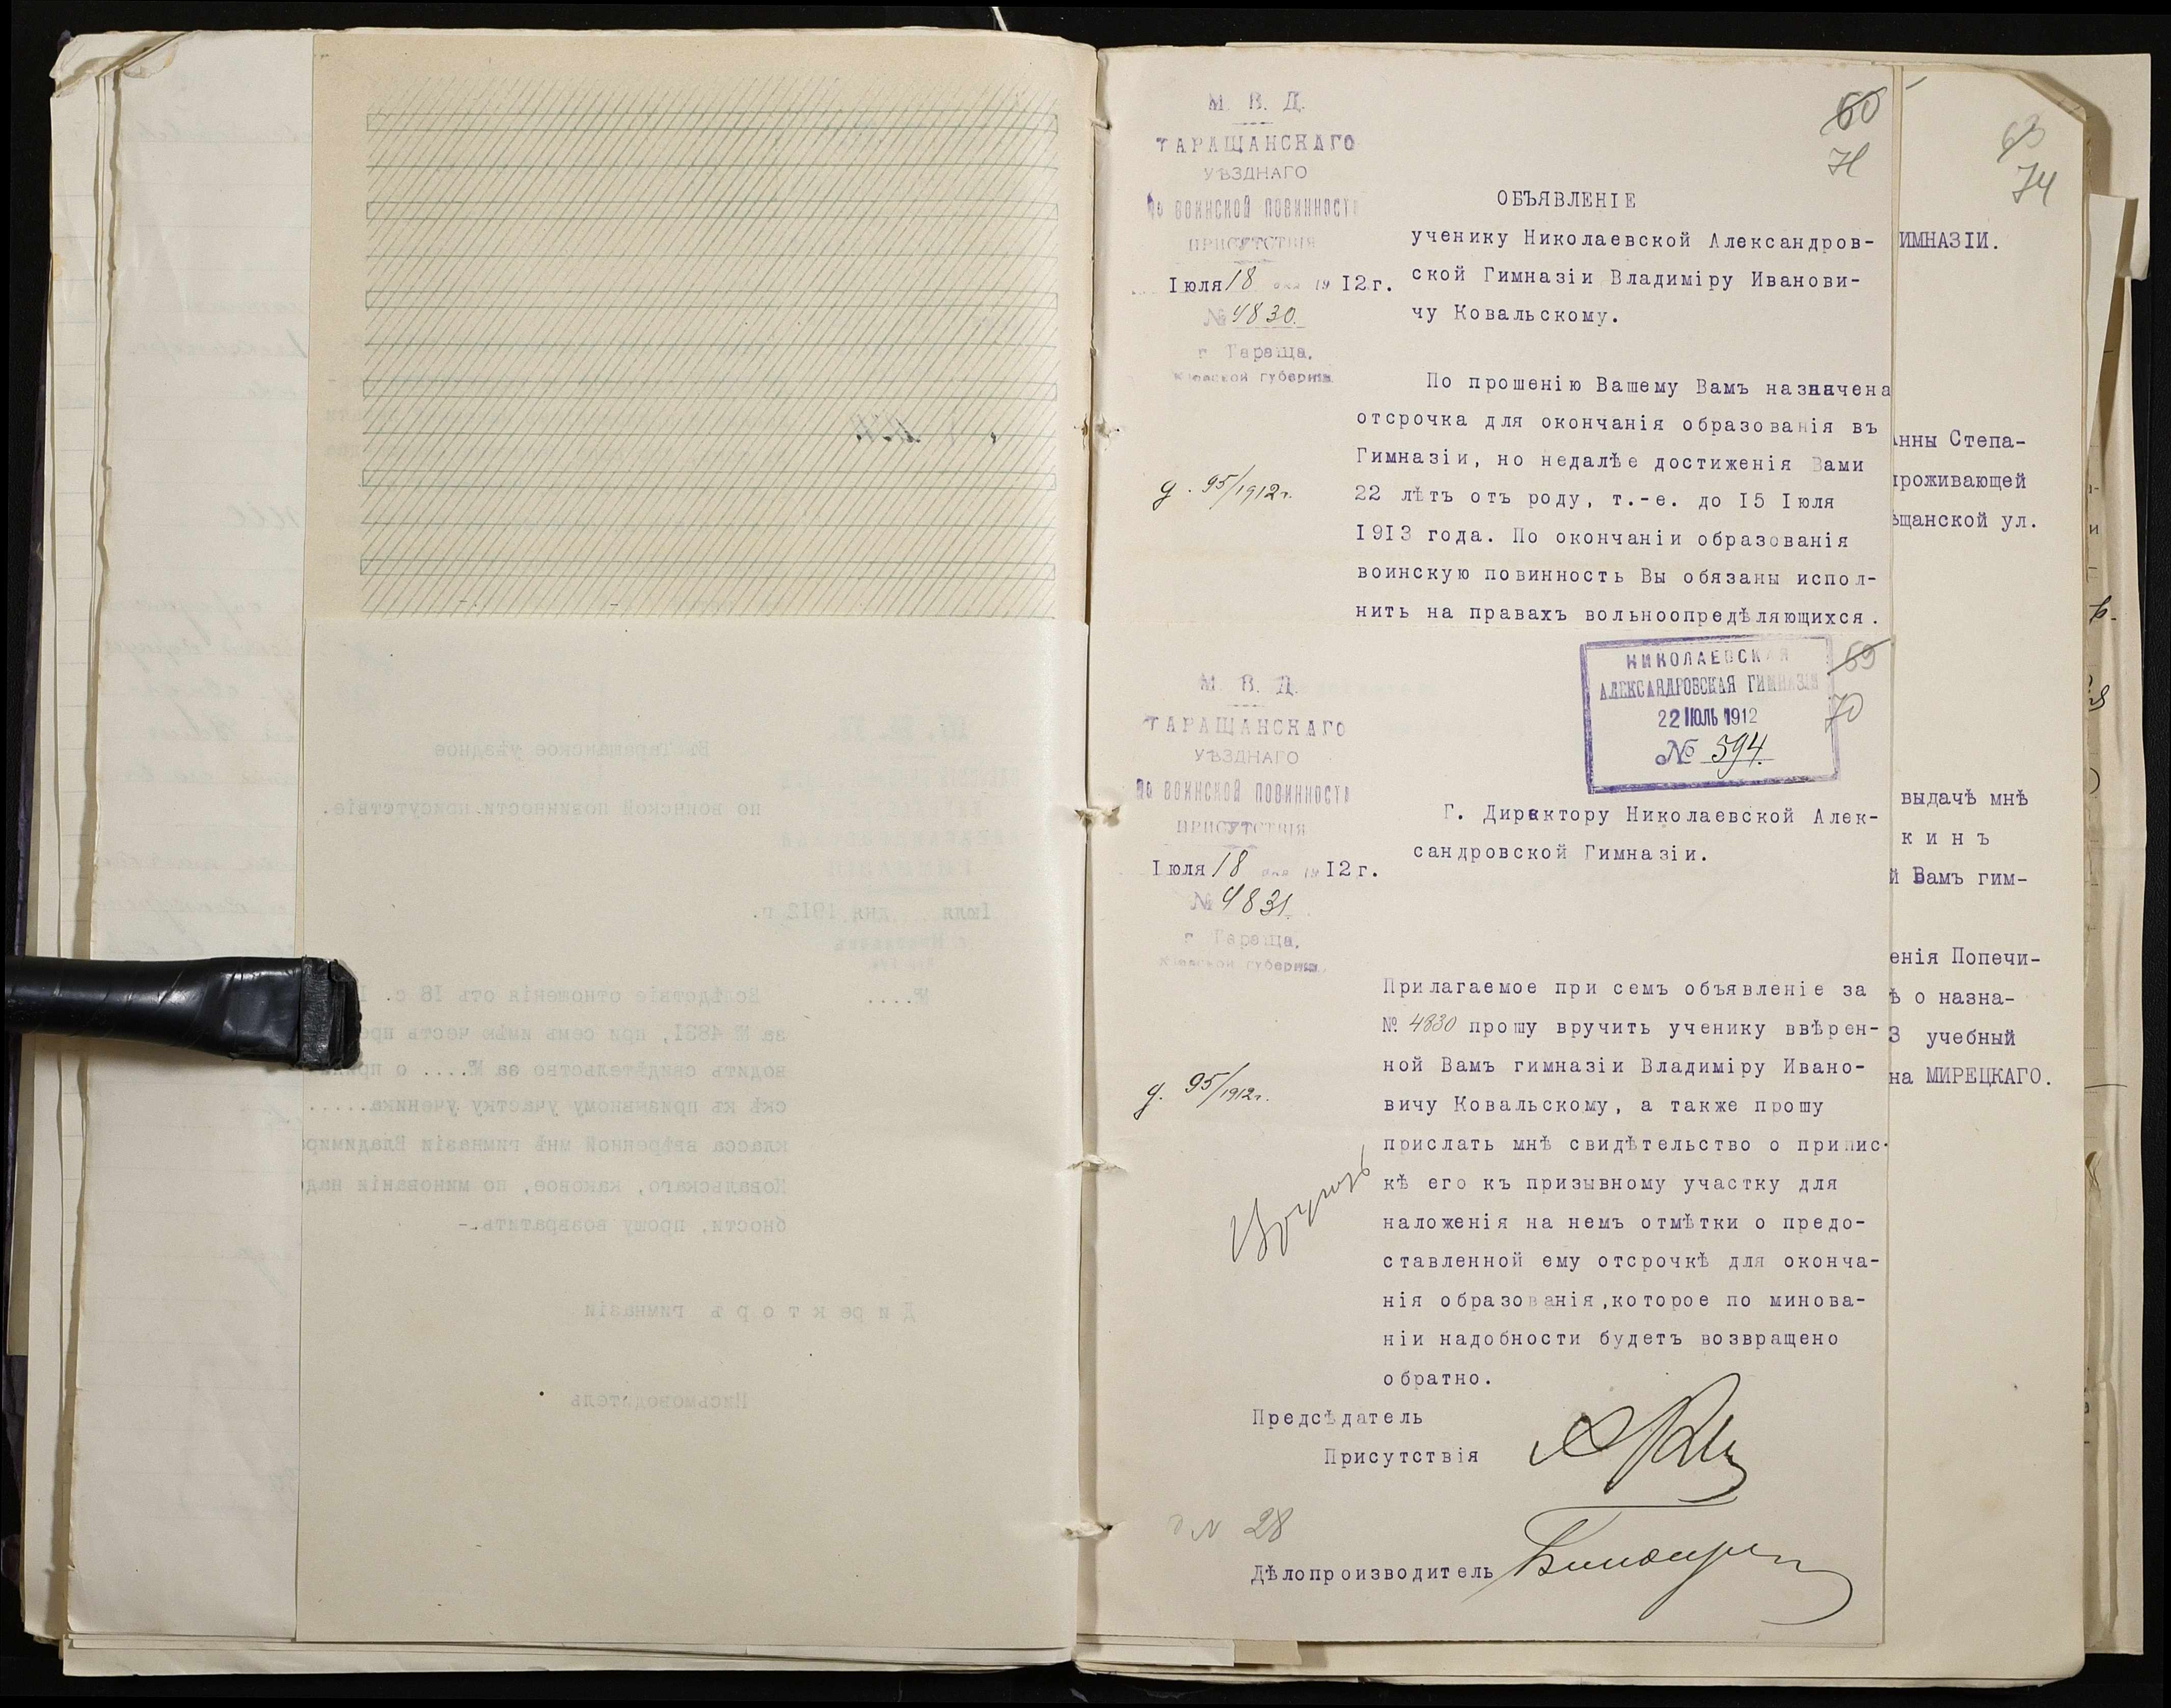 60
71
М. В. Д.
ТАРАЩАНСКАГО
УѢЗДНАГО
По ВОИНСКОЙ ПОВИННОСТИ
ПРИСУТСТВІЯ
Іюля 18 дня 1912 г.
№ 4830.
г. Тараща,
Кіевской губерніи.
д. 95/1912 г.
ОБЪЯВЛЕНІЕ
ученику Николаевской Александров-
ской Гимназіи Владиміру Иванови-
чу Ковальскому.
По прошенію Вашему Вамъ назначена
отсрочка для окончанія образованія въ
Гимназіи, но недалѣе достиженія Вами
22 лѣтъ отъ роду, т.-е. до 15 Іюля
1913 года. По окончаніи образованія
воинскую повинность Вы обязаны испол-
нить на правахъ вольноопредѣляющихся.
НИКОЛАЕВСКАЯ
АЛЕКСАНДРОВСКАЯ ГИМНАЗІЯ
22 ІЮЛЬ 1912
№ 594.
69
70
М. В. Д.
ТАРАЩАНСКАГО
УѢЗДНАГО
По ВОИНСКОЙ ПОВИННОСТИ
ПРИСУТСТВІЯ
Іюля 18 дня 1912 г.
№ 4831.
г. Тараща,
Кіевской губерніи.
д. 95/1912 г.
Г. Директору Николаевской Алек-
сандровской Гимназіи.
Прилагаемое при семъ объявленіе за
№ 4830 прошу вручить ученику ввѣрен-
ной Вамъ гимназіи Владиміру Ивано-
вичу Ковальскому, а также прошу
прислать мнѣ свидѣтельство о припис-
кѣ его къ призывному участку для
наложенія на немъ отмѣтки о предо-
ставленной ему отсрочкѣ для оконча-
нія образованія,которое по минова-
ніи надобности будетъ возвращено
обратно.
Предсѣдатель
Присутствія
д N 28
Дѣлопроизводитель
63
74
ИМНАЗІИ.
Анны Степа-
проживающей
ѣщанской ул.
выдачѣ мнѣ
к и н ъ
й Вамъ гим-
енія Попечи-
ѣ о назна-
3 учебный
на МИРЕЦКАГО.
Въ Таращанское уѣздное
по воинской повинности присутствіе.
Іюля дня 1912 г.
№....
Вслѣдствіе отношенія отъ 18 с. І
за № 4831, при семъ имѣю честь пре
водить свидѣтельство за №.... о припи
скѣ къ призывному участку ученика.....
класса ввѣренной мнѣ гимназіи Владимира
Ковальскаго, каковое, по минованіи надо
бности, прошу возвратить.-
Д и р е к т о р ъ гимназіи
Письмоводитель